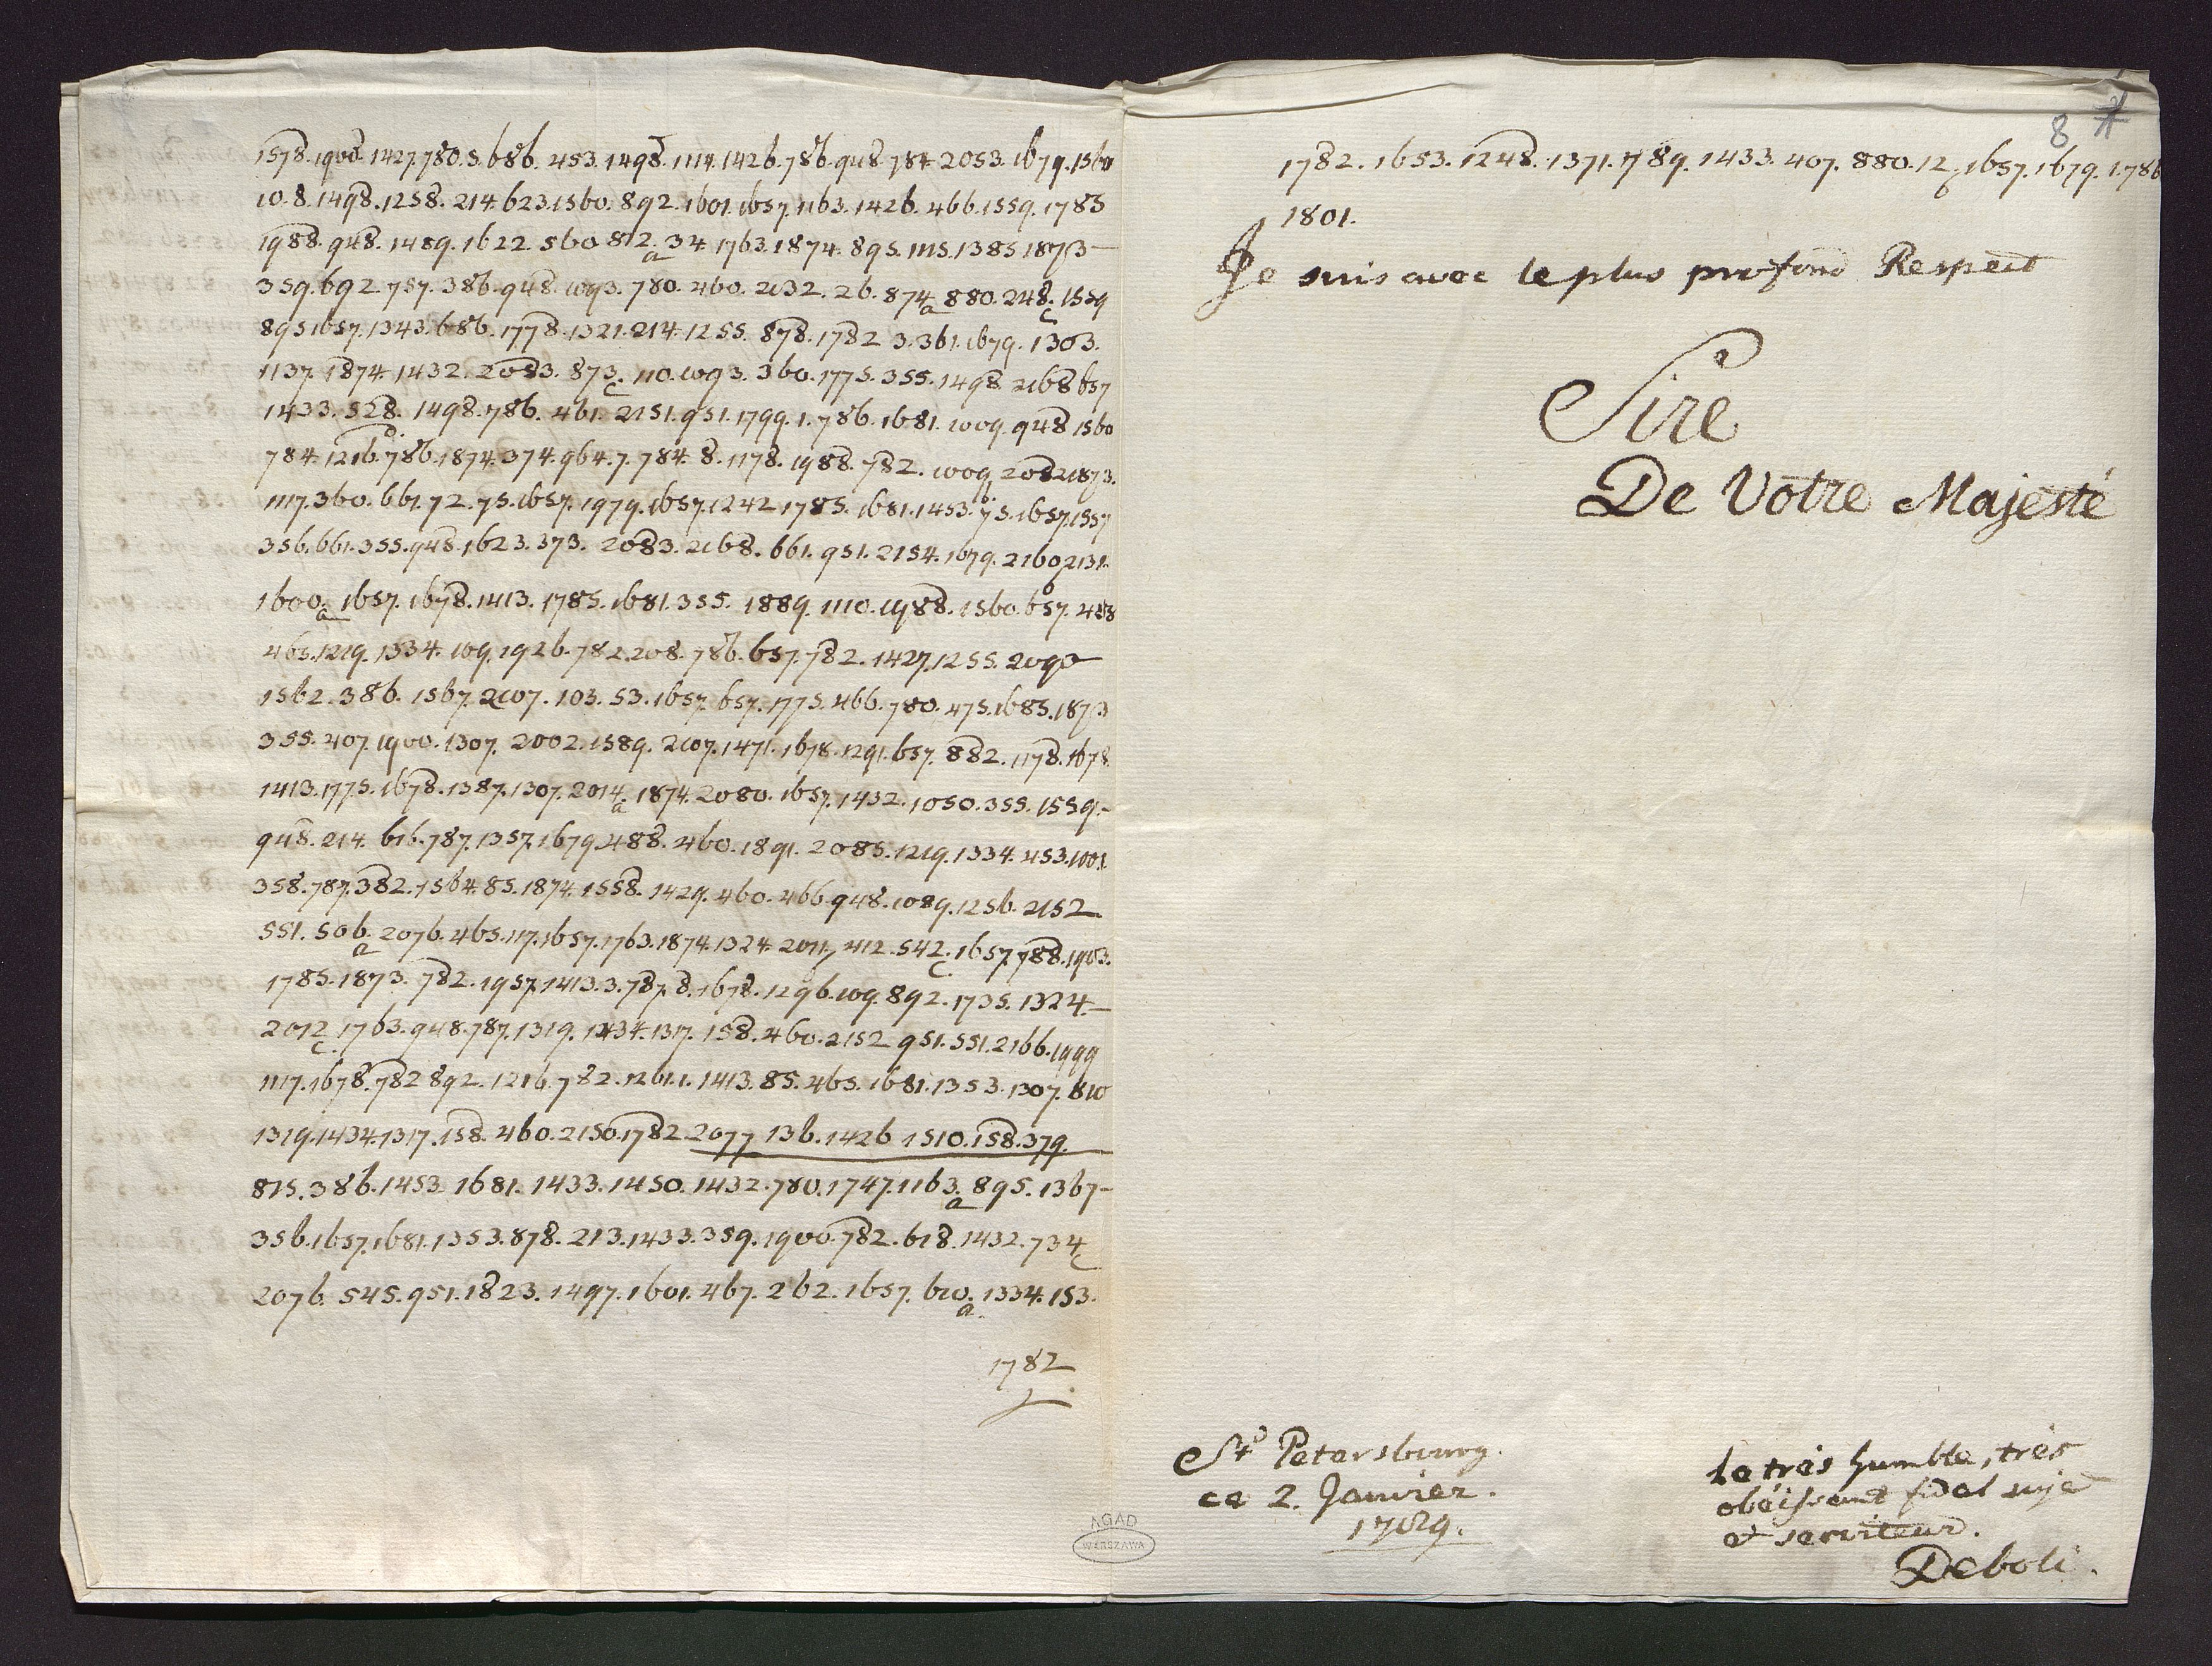 1578.1900.1427.780.3.686.453.1498.1114.1426.786.948.784.2053.1679.1560
10.8.1498.1258.214.623.1560.892.1601.1657.1163.1426.466.1559.1785
1988.948.1489.1622.560.812.34.1763.1874.895.1115.1385.1873
a
359.692.757.386.948.1093.780.460.2132.26.874.880.248.1559
a c
895.1657.1343.686.1778.1321.214.1255.878.1782.3.361.1679.1303.
1137.1874.1432.2083.873.110.1093.360.1775.355.1498.2168.657
c
1433.528.1498.786.461.2151.951.1799.1.786.1681.1009.948.1560
784.1216.786.1874.374.964.7.784.8.1178.1988.782.1009.2082.1873.
1117.360.661.72.75.1657.1979.1657.1242.1785.1681.1453.75.1657.1557
356.661.355.948.1623.373.2083.2168.661.951.2154.1679.2160.2131.
1600.1657.1678.1413.1785.1681.355.1889.1110.1988.1560.657.488
a
465.1219.1334.109.1926.782.208.786.657.782.1427.1255.2090
1562.386.1567.2107.103.53.1657.657.1775.466.780.475.1685.1873
355.407.1900.1307.2002.1589.2107.1471.1678.1291.657.882.1178.1678
1413.1775.1678.1387.1307.2014.1874.2080.1657.1432.1050.355.1559.
a
948.214.616.787.1357.1679.488.460.1891.2085.1219.1334.453.1001.
358.787.382.1564.85.1874.1558.1429.460.466.948.1089.1256.2152
551.506.2076.465.117.1657.1763.1874.1324.2011.412.542.1657.788.1903.
a c
1785.1873.782.1957.1413.3.787.8.1678.1296.109.892.1735.1324.
2012.1763.948.787.1319.1434.1317.158.460.2152.951.551.2166.1999
c
1117.1678.782.892.1216.782.1261.1.1413.85.465.1681.1353.1307.810
1319.1434.1317.158.460.2150.1782.2077.136.1426.1510.158.379.
815.386.1453.1681.1433.1450.1432.780.1747.1163.895.1367
a
356.1657.1681.1353.878.213.1433.359.1900.782.618.1432.734
c
2076.545.951.1823.1497.1601.467.262.1657.610.1334.153.
a
1782
8
1782.1653.1248.1371.1789.1433.407.880.12.1657.1679.1.786
1801.
Je suis avec le plus profond Respect
Sire
De Votre Majesté
St Petersbourg.
ce 2. Janvier.
1789.
le très humble, très
obéissant fidel sujet
et serviteur.
Deboli.
AGAD
WARSZAWA